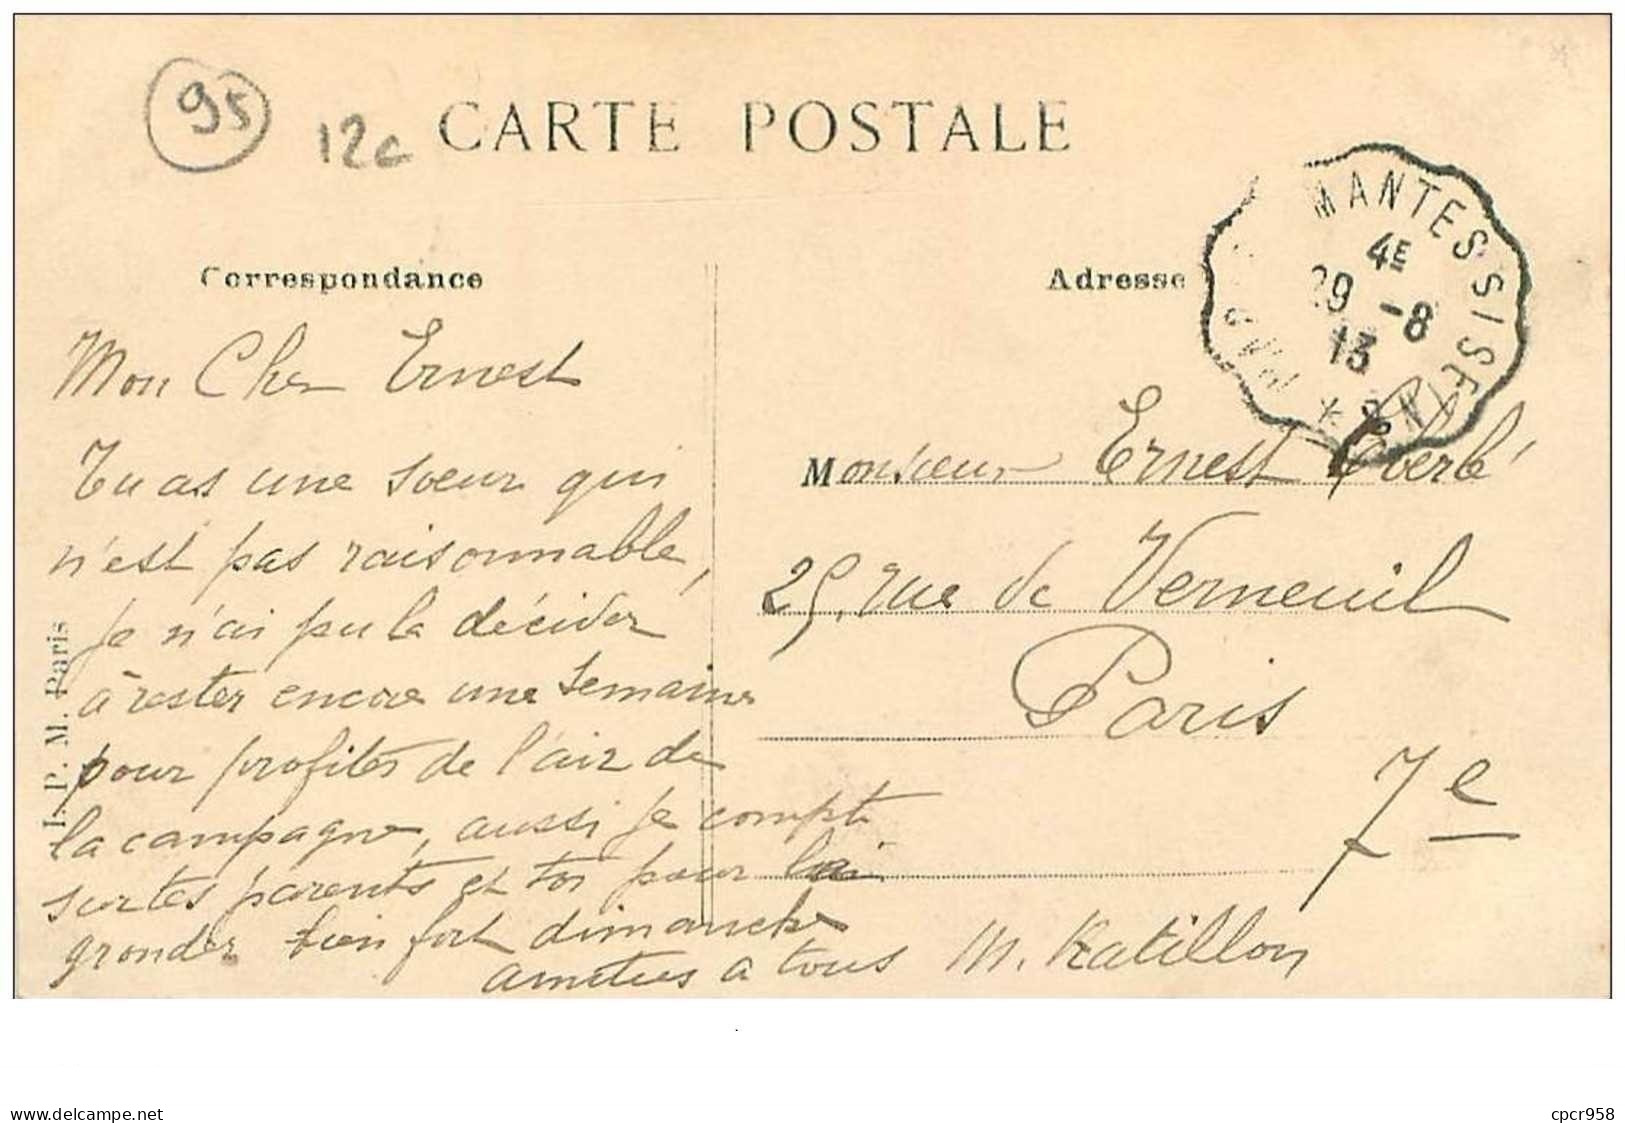 95
12c
CARTE POSTALE
MANTES
4E
29 -8
13
Correspondance
Adresse
Mon Cher Ernest
Tu as une soeur qui
n'est pas raisonnable,
je n'ai pu la décider
à rester encore une semaine
pour profiter de l'air de
la campagne, aussi je compte
sur tes parents et toi pour lui
gronder bien fort dimanche
amitiés à tous M. Katillon
Monsieur Ernest Eberlé
25, rue de Verneuil
Paris
7e
I. P. M. Paris
www.delcampe.net
cpcr958